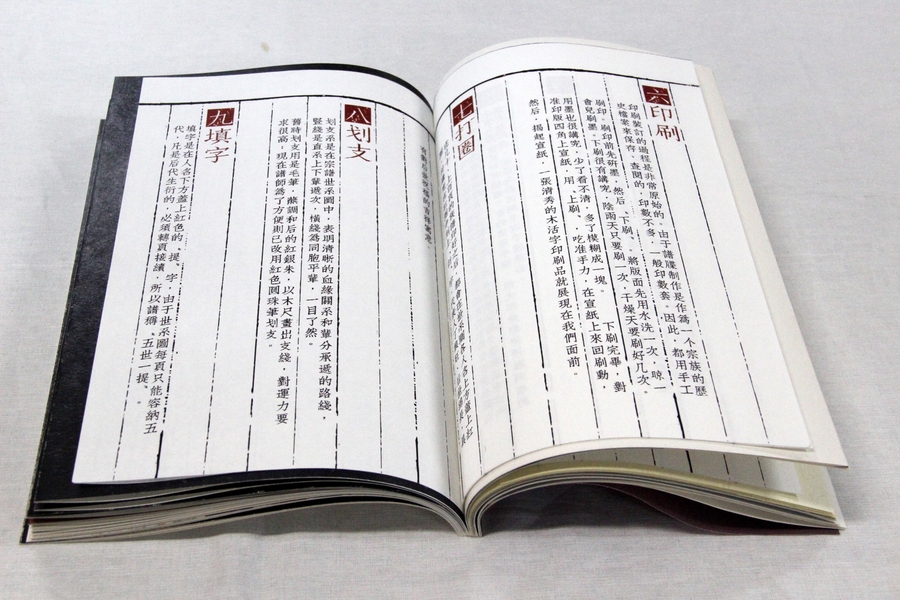 六 印刷
印刷裝訂的過程是非常原始的，由于譜牒制作是作為一个宗族的歷
史檔案來保存、查閱的，印數不多，一般印數套。因此，都用手工
刷印。刷印前先研墨，然后、下刷、將版面先用水洗一次，晾一
會兒刷墨。下刷很有講究，陰雨天只要刷一次，干燥天要刷好几次。
用墨也很講究，少了看不清，多了模糊成一塊。 下刷完畢，對
准印版四角上宣紙，用、上刷、吃准手力，在宣紙上來回刷動，
然后，揭起宣紙，一張清秀的木活字印刷品就展現在我們面前。
七 打圈
八 划支
划支系是在宗譜世系圖中，表明清晰的血緣關系和輩分承遞的路綫，
豎綫是直系上下輩遞次，橫綫為同胞平輩，一目了然。
舊時划支用是毛筆，蘸調和后的紅銀朱，以木尺畫出支綫，對運力要
求很高；現在譜師為了方便則已改用紅色圓珠筆划支。
九 填字
填字是在人名下方蓋上紅色的、提、字，由于世系圖每頁只能容納五
代，凡是后代生衍的，必須轉頁接續，所以譜稱、五世一提、。